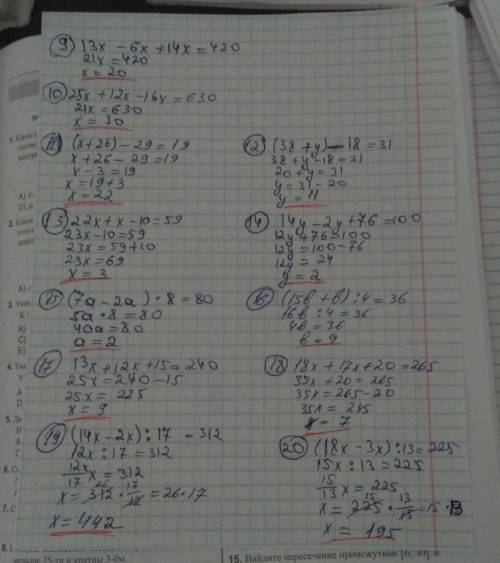 9) 13x - 6x + 14x = 420
21x = 420
x = 20
10) 25x + 12x - 16x = 630
21x = 630
x = 30
11) (x+26) - 29 = 19
x + 26 - 29 = 19
x - 3 = 19
x = 19 + 3
x = 22
12) (38 + y) - 18 = 31
38 + y - 18 = 31
20 + y = 31
y = 31 - 20
y = 11
13) 22x + x - 10 = 59
23x - 10 = 59
23x = 59 + 10
23x = 69
x = 3
14) 14y - 2y + 76 = 100
12y + 76 = 100
12y = 100 - 76
12y = 24
y = 2
15) (7a - 2a) · 8 = 80
5a · 8 = 80
40a = 80
a = 2
16) (15b + b) : 4 = 36
16b : 4 = 36
4b = 36
b = 9
17) 13x + 12x + 15 = 240
25x = 240 - 15
25x = 225
x = 9
18) 18x + 17x + 20 = 265
35x + 20 = 265
35x = 265 - 20
35x = 245
x = 7
19) (14x - 2x) : 17 = 312
12x : 17 = 312
12/17 x = 312
x = 312 · 17/12 = 26 · 17
x = 442
20) (18x - 3x) : 13 = 225
15x : 13 = 225
15/13 x = 225
x = 225 · 13/15 = 15 · 13
x = 195
15. Найдите пересечение промежутков [6; 10] и